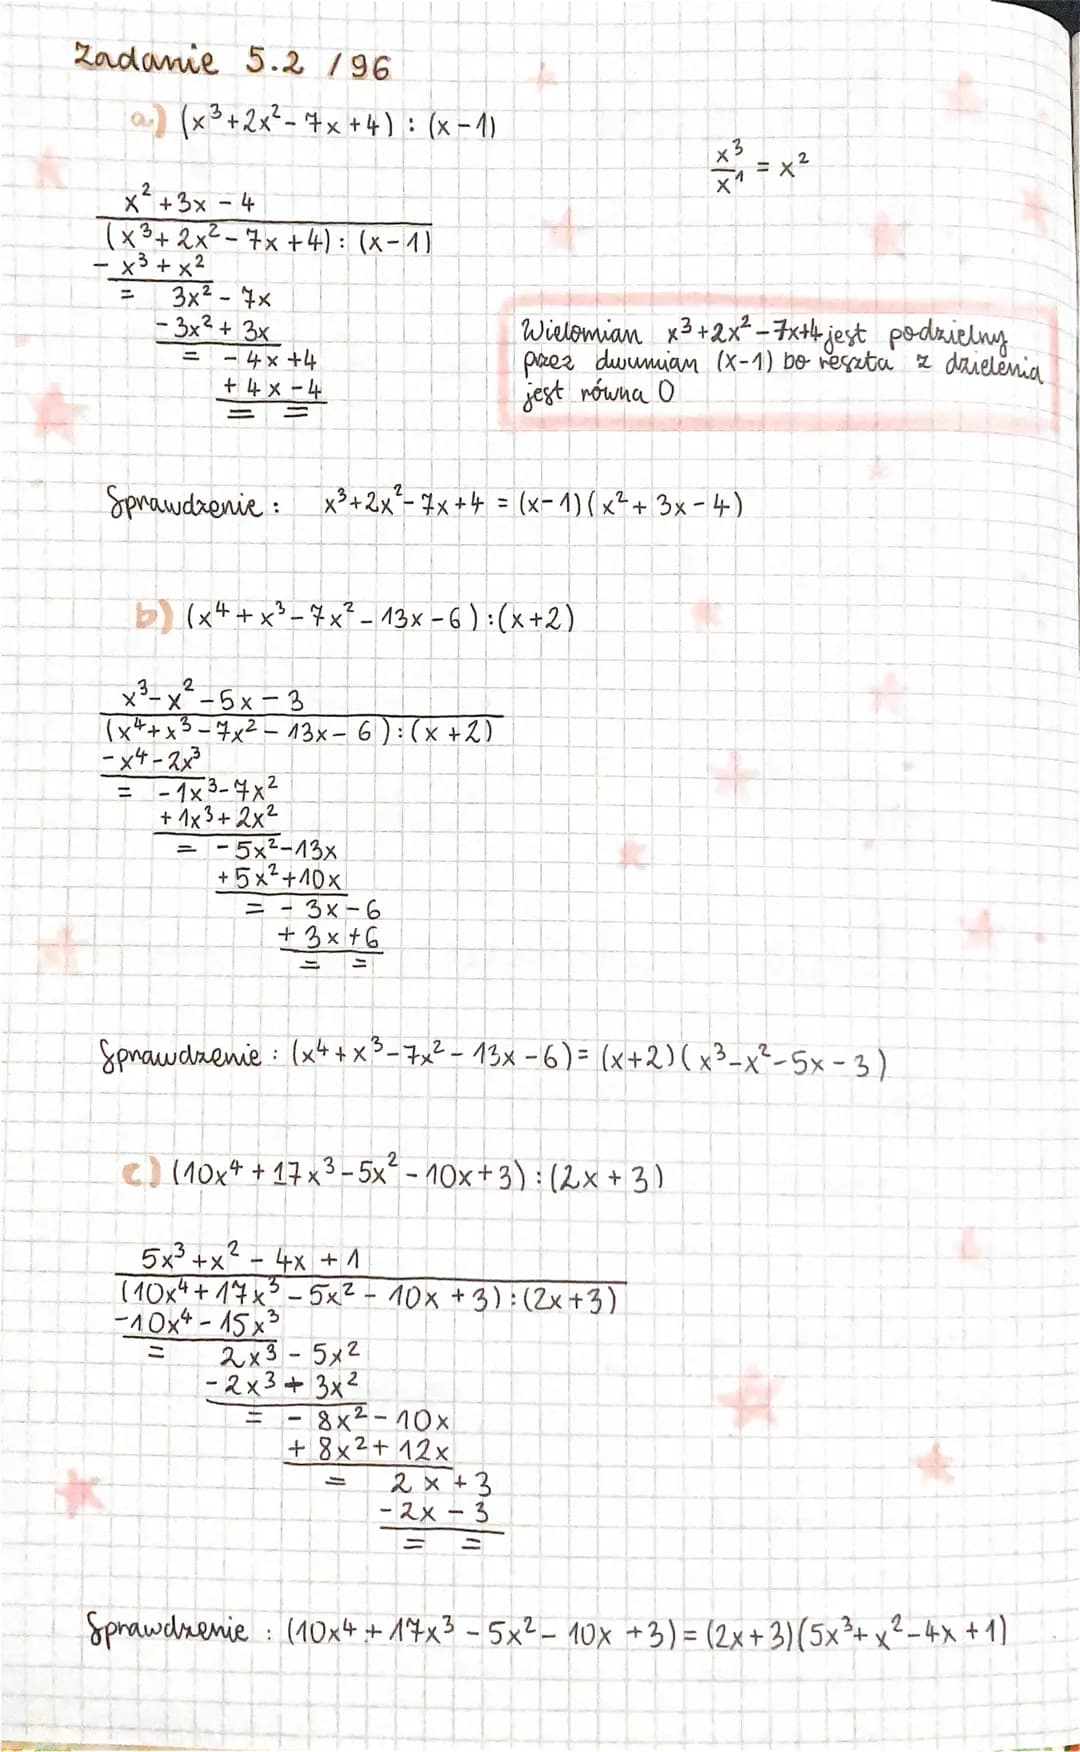 Zadanie 5.2 / 96
a) (x³+2x²-7x+4) : (x-1)
x³/x¹ = x²
x²+3x-4
(x³+2x²-7x+4) : (x-1)
- x³+x²
= 3x²-7x
-3x²+3x
= -4x+4
+4x-4
= =
Wielomian x³+2x²-7x+4 jest podzielny
przez dwumian (x-1) bo reszta z dzielenia
jest równa 0
Sprawdzenie : x³+2x²-7x+4 = (x-1)(x²+3x-4)
b) (x⁴+x³-7x²-13x-6):(x+2)
x³-x²-5x-3
(x⁴+x³-7x²-13x-6):(x+2)
-x⁴-2x³
= -1x³-7x²
+1x³+2x²
= -5x²-13x
+5x²+10x
= -3x-6
+3x+6
= =
Sprawdzenie : (x⁴+x³-7x²-13x-6)= (x+2)(x³-x²-5x-3)
c) (10x⁴+17x³-5x²-10x+3):(2x+3)
5x³+x²-4x+1
(10x⁴+17x³-5x²-10x+3):(2x+3)
-10x⁴-15x³
= 2x³-5x²
-2x³+3x²
= -8x²-10x
+8x²+12x
= 2x+3
-2x-3
= =
Sprawdzenie : (10x⁴+17x³-5x²-10x+3)=(2x+3)(5x³+x²-4x+1)